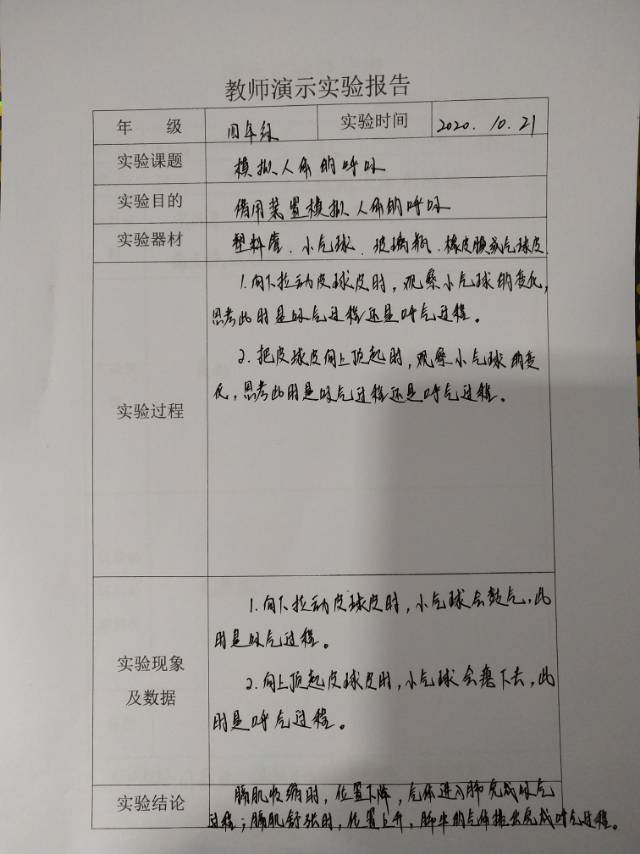 教师演示实验报告
年 级 四年级 实验时间 2020.10.21
实验课题 模拟人体的呼吸
实验目的 借用装置模拟人体的呼吸
实验器材 塑料管、小气球、玻璃瓶、橡皮膜或气球皮
实验过程
1.向下拉动皮球皮时,观察小气球的变化,
思考此时是吸气过程还是呼气过程。
2.把皮球皮向上顶起时,观察小气球的变
化,思考此时是吸气过程还是呼气过程。
实验现象
及数据
1.向下拉动皮球皮时,小气球会鼓气,此
时是吸气过程。
2.向上顶起皮球皮时,小气球会瘪下去,此
时是呼气过程。
实验结论 膈肌收缩时,位置下降,气体进入肺完成吸气
过程;膈肌舒张时,位置上升,肺中的气体排出完成呼气过程。